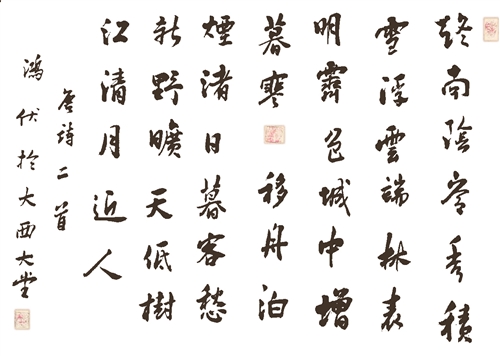 終南陰岺秀積
雪浮雲端林表
明霽色城中增
暮寒 移舟泊
煙渚日暮客愁
新野曠天低樹
江清月近人
唐詩二首
鴻伏於大西大堂